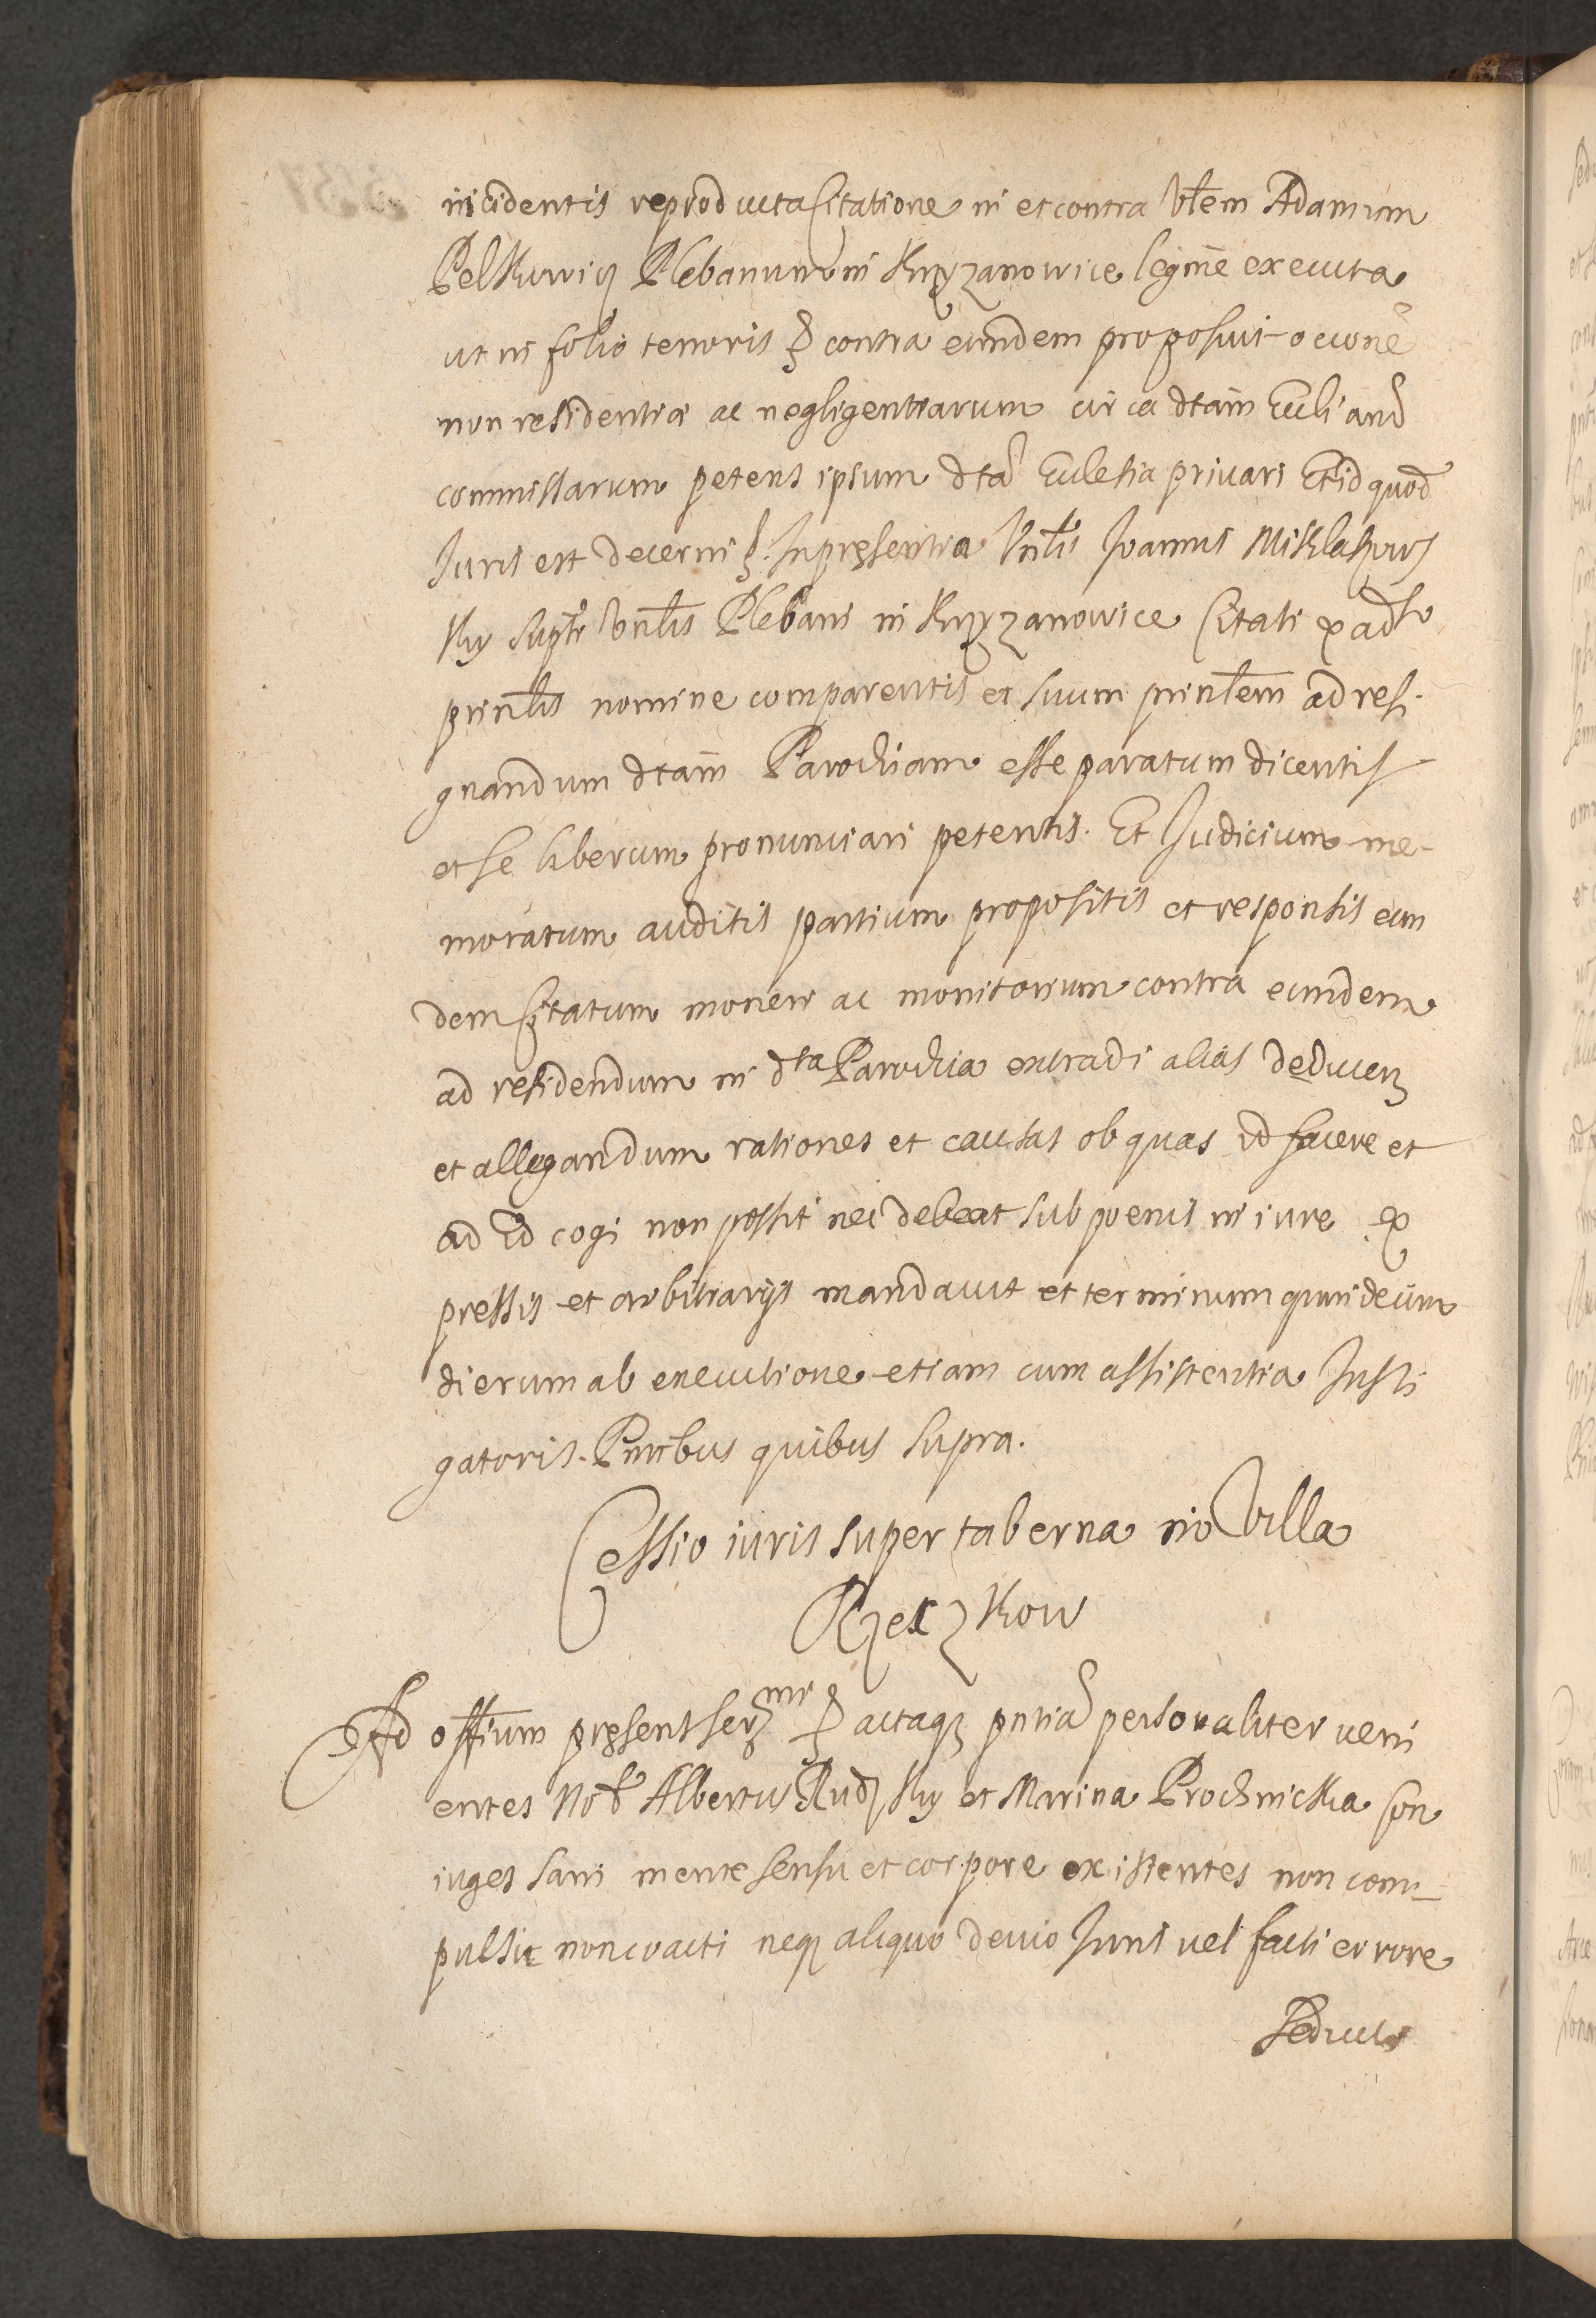 incidentis reproducta Citatione in et contra Vblem Adamum
Pelkowicz Plebanum in Krzyzanowice legittme executa
ut in folio tenoris & contra eundem proposuit occone
non residentiæ ac negligentiarum circa dtam Eccli and
commissarum petens ipsum dta Ecclesia privari Et id quod
Juris est decerni &. In præsentia Vnlis Joannis Miklaszows
ky supr Vnlis Plebani in Krzyzanowice Citati ex adso
prinlis nomine comparentis et suum prinlem ad resi-
gnandum dtam Parochiam esse paratum dicentis
et se liberum pronunciari petentis. Et Judicium me-
moratum auditis partium propositis et responsis eun
dem Citatum moneri ac monitorium contra eundem
ad residendum in dta Parochia extradi alias deducen
et allegandum rationes et causas ob quas id facere et
ad id cogi non possit nec debeat sub poenis in iure ex
pressis et arbitrarijs mandavit et terminum quindecim
dierum ab executione etiam cum assistentia Insti
gatoris. Pntibus quibus supra.
Cessio iuris super taberna in Villa
Rzeczkow
Ad offium præsens &actaq pntia personaliter veni
entes Nob Albertus Rudzky et Marina Prochnicka Con
iuges sani mente sensu et corpore existentes non com-
pulsi non coacti neq aliquo devio Juris vel facti errore
Seducti